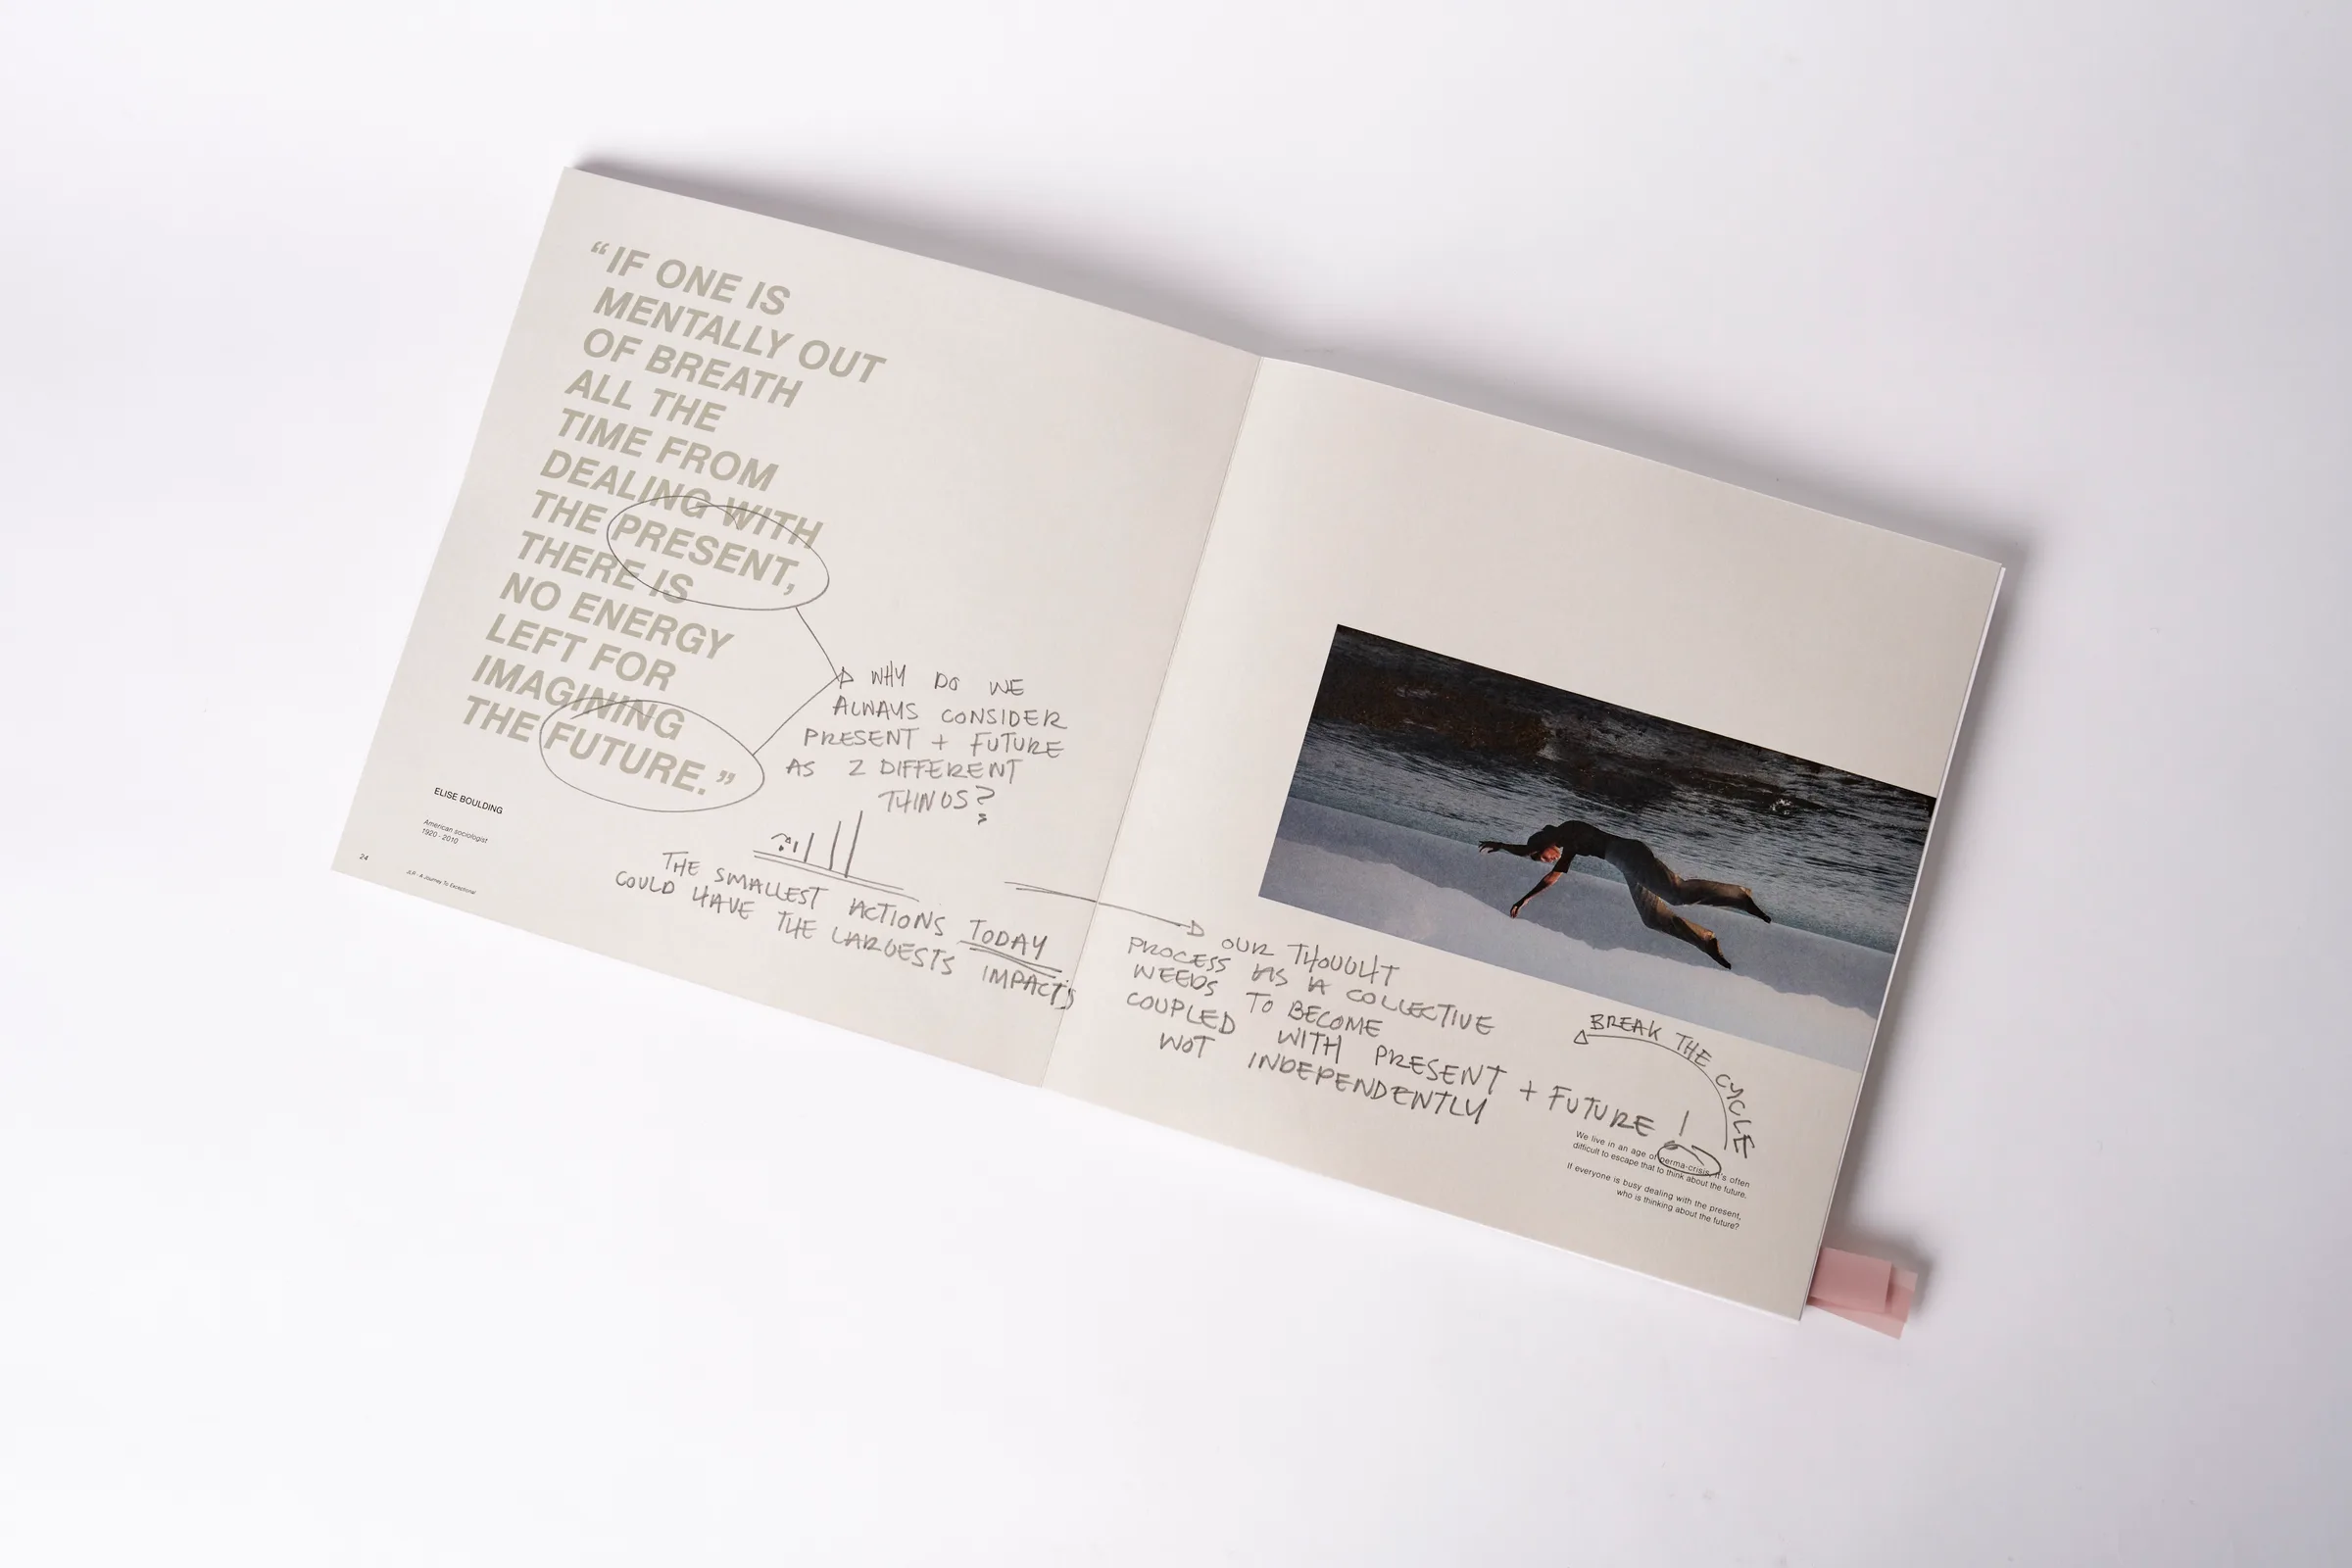 “IF ONE IS
MENTALLY OUT
OF BREATH
ALL THE
TIME FROM
DEALING WITH
THE PRESENT,
THERE IS
NO ENERGY
LEFT FOR
IMAGINING
THE FUTURE.”
ELISE BOULDING
American sociologist
1920 - 2010
24
JLR - A Journey To Exceptional
WHY DO WE
ALWAYS CONSIDER
PRESENT + FUTURE
AS 2 DIFFERENT
THINGS?
THE SMALLEST ACTIONS TODAY
COULD HAVE THE LARGESTS IMPACTS
OUR THOUGHT
PROCESS AS A COLLECTIVE
NEEDS TO BECOME
COUPLED WITH PRESENT + FUTURE !
NOT INDEPENDENTLY
BREAK THE CYCLE
We live in an age of perma-crisis, it's often
difficult to escape that to think about the future.
If everyone is busy dealing with the present,
who is thinking about the future?